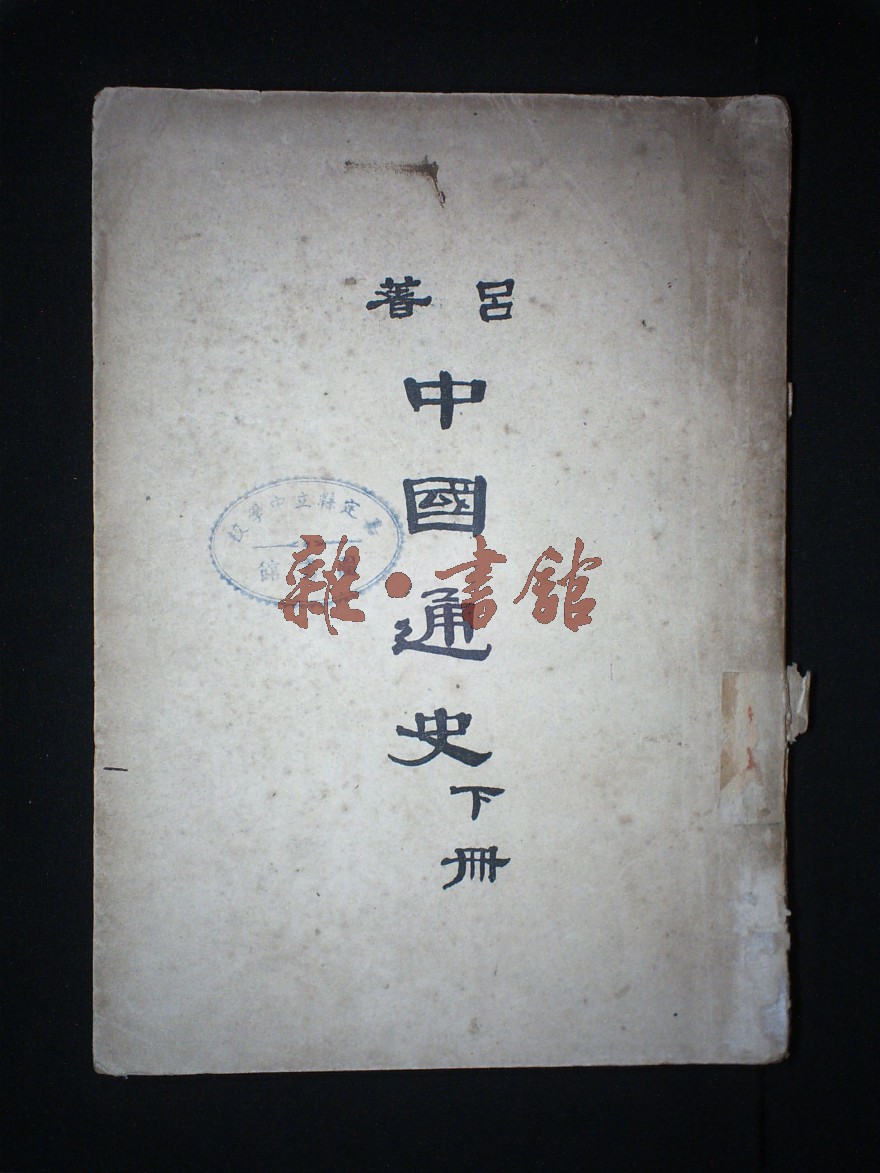 呂著
中國通史
下冊
定縣立中學校
館
雜·書館